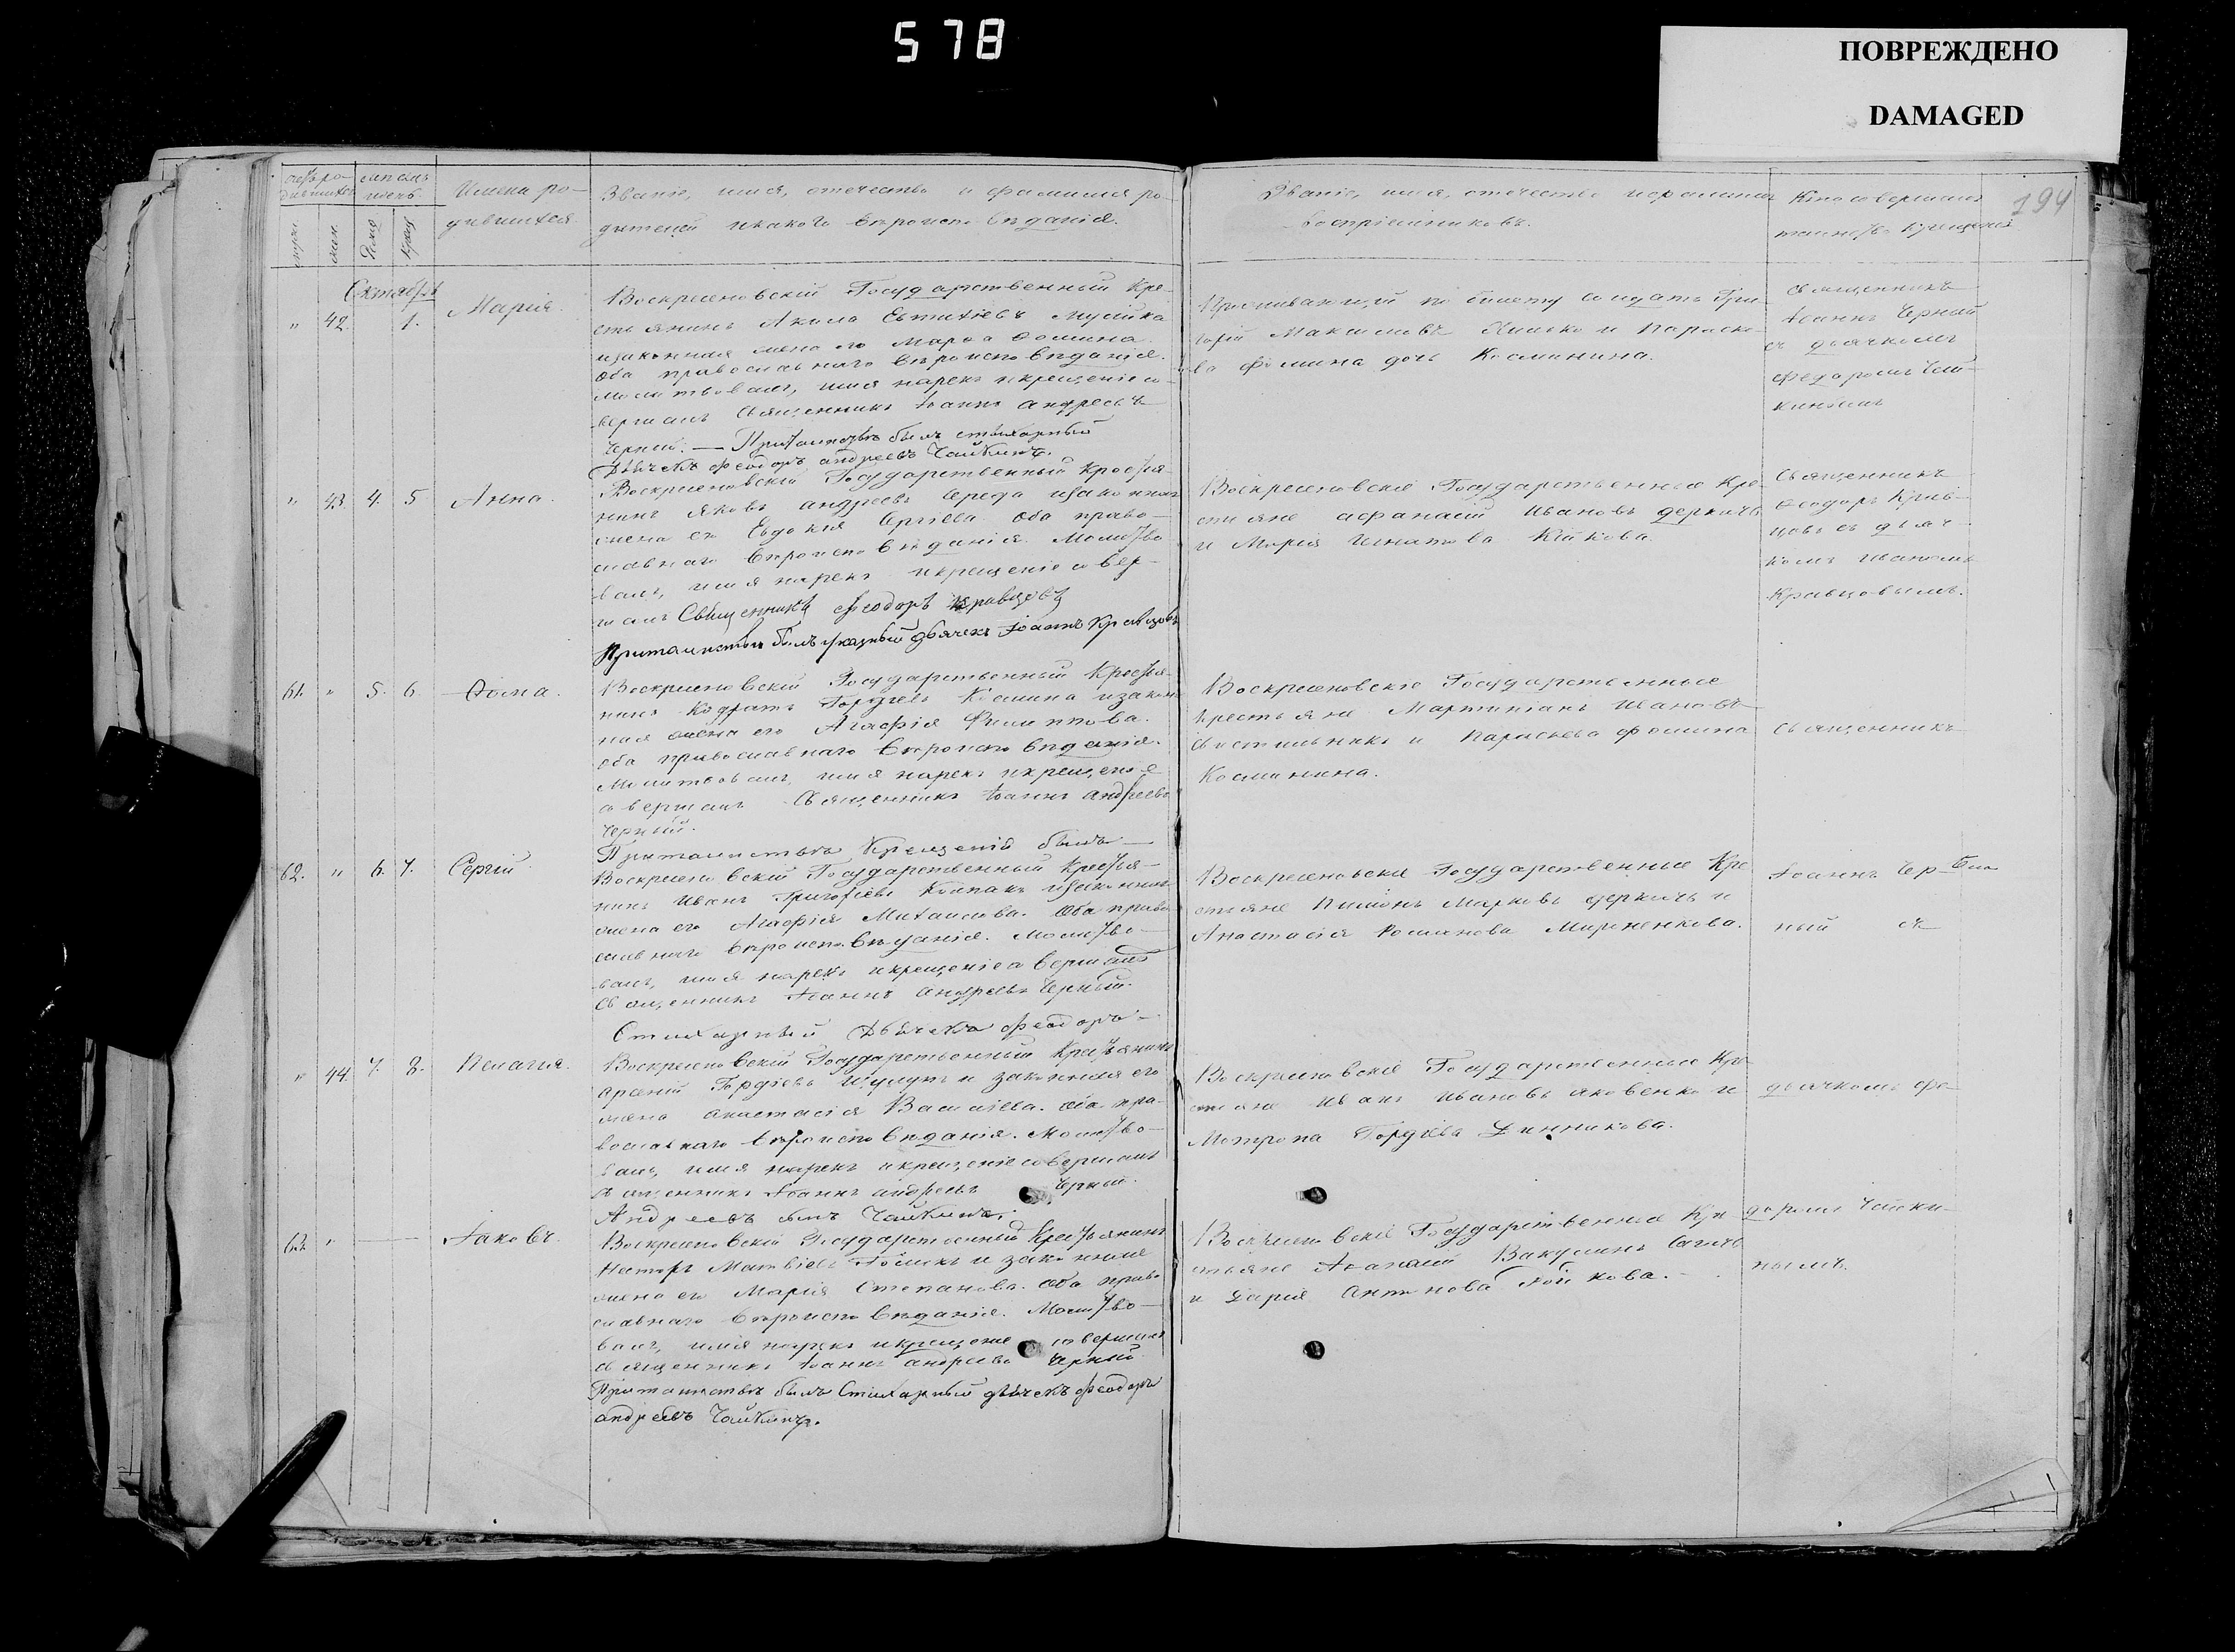 578
ПОВРЕЖДЕНО
DAMAGED
194
Имена ро-
дившихся.
Званіе, имя, отечество и фамилія ро-
дителей и какого вѣроисповѣданія.
Званіе, имя, отечество и фамилія
воспріемниковъ.
Кто совершалъ
таинство крещенія
Октябрь
" 42. 1. Марія.
Воскресеновскій Государственный Кре-
стьянинъ Акила Евтихіевъ
и законная жена его Марфа Фомина
оба православнаго вѣроисповѣданія.
Молитвовалъ, имя нарекъ и крещеніе со-
вершалъ Священникъ Іоаннъ Андреевъ
Черный. — При таинствѣ былъ стихарный
Дьячекъ Феодоръ Андреевъ Чайкинъ.
по билету солдатъ Гри-
горій Максимовъ и Параске-
ва Фомина дочь Космынина.
Священникъ
Іоаннъ Черный
съ дьячкомъ
Федоромъ Чай-
кинымъ
" 43. 4. 5 Анна.
Воскресеновскій Государственный Крестья-
нинъ Яковъ Андреевъ Середа и законная
жена его Евдокія Сергіева оба право-
славнаго вѣроисповѣданія. Молитво-
валъ, имя нарекъ и крещеніе совер-
шалъ Священникъ Феодоръ Кравцовъ
При таинствѣ былъ указный дьячекъ Іоаннъ Кравцовъ
Воскресеновскіе Государственные Кре-
стьяне Афанасій Ивановъ Деркачъ
и Марія Игнатова
Священникъ
Феодоръ Крав-
цовъ съ дьяч-
комъ Иваномъ
Кравцовымъ.
61. " 5. 6. Фома.
Воскресеновскій Государственный Крестья-
нинъ Кодратъ Гордіевъ и закон-
ная жена его Агафія Филиппова.
оба православнаго вѣроисповѣданія.
Молитвовалъ, имя нарекъ и крещеніе
совершалъ Священникъ Іоаннъ Андреевъ
Черный.
При таинствѣ Крещенія былъ —
Воскресеновскіе Государственные
крестьяне Мартиніанъ Ивановъ
и Параскева Фомина
Космынина.
Священникъ
62. " 6. 7. Сергій.
Воскресеновскій Государственный Крестья-
нинъ Иванъ Григорьевъ Колпакъ и законная
жена его Агафія Михаилова. Оба право-
славнаго вѣроисповѣданія. Молитво-
валъ, имя нарекъ и крещеніе совершалъ
Священникъ Іоаннъ Андреевъ Черный.
Стихарный Дьячекъ Феодоръ —
Воскресеновскіе Государственные Кре-
стьяне Пименъ Марковъ Деркачъ и
Анастасія Романова Мироненкова.
Іоаннъ Чер-
ный съ
" 44. 7. 8. Пелагія.
Воскресеновскій Государственный Крестьянинъ
Арсеній Гордіевъ и законная его
жена Анастасія Василіева. Оба пра-
вославнаго вѣроисповѣданія. Молитво-
валъ, имя нарекъ и крещеніе совершалъ
Священникъ Іоаннъ Андреевъ Черный.
Андреевъ былъ Чайкинъ.
Воскресеновскіе Государственные Кре-
стьяне Иванъ Ивановъ Яковенко и
Мотрона Гордіева Динникова.
дьячкомъ Фе-
63. " — — Іаковъ.
Воскресеновскій Государственный Крестьянинъ
Несторъ Матвіевъ и законная
жена его Марія Степанова. Оба право-
славнаго вѣроисповѣданія. Молитво-
валъ, имя нарекъ и крещеніе совершалъ
Священникъ Іоаннъ Андреевъ Черный
При таинствѣ былъ Стихарный дьячекъ Феодоръ
Андреевъ Чайкинъ.
Воскресеновскіе Государственные Кре-
стьяне Вакулинъ
и Дарія Антонова
доромъ Чайки-
нымъ.